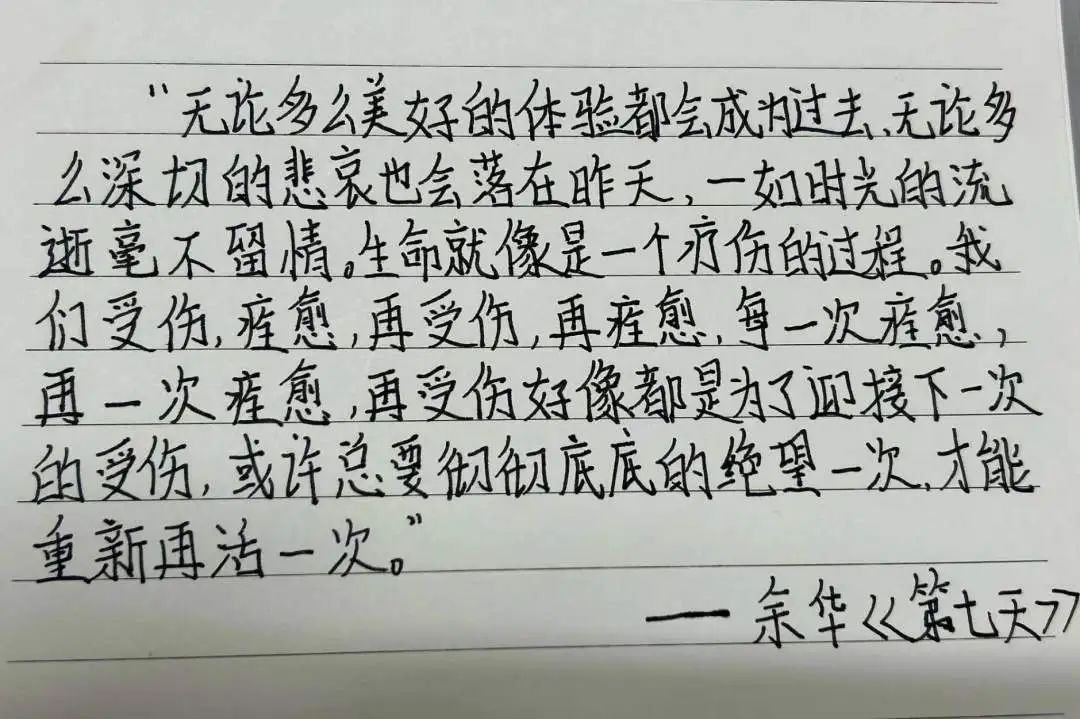 “无论多么美好的体验都会成为过去、无论多
么深切的悲哀也会落在昨天,一如时光的流
逝毫不留情。生命就像是一个疗伤的过程。我
们受伤,痊愈,再受伤,再痊愈,每一次痊愈,
再一次痊愈,再受伤好像都是为了迎接下一次
的受伤,或许总要彻彻底底的绝望一次,才能
重新再活一次。”
——余华《第七天》